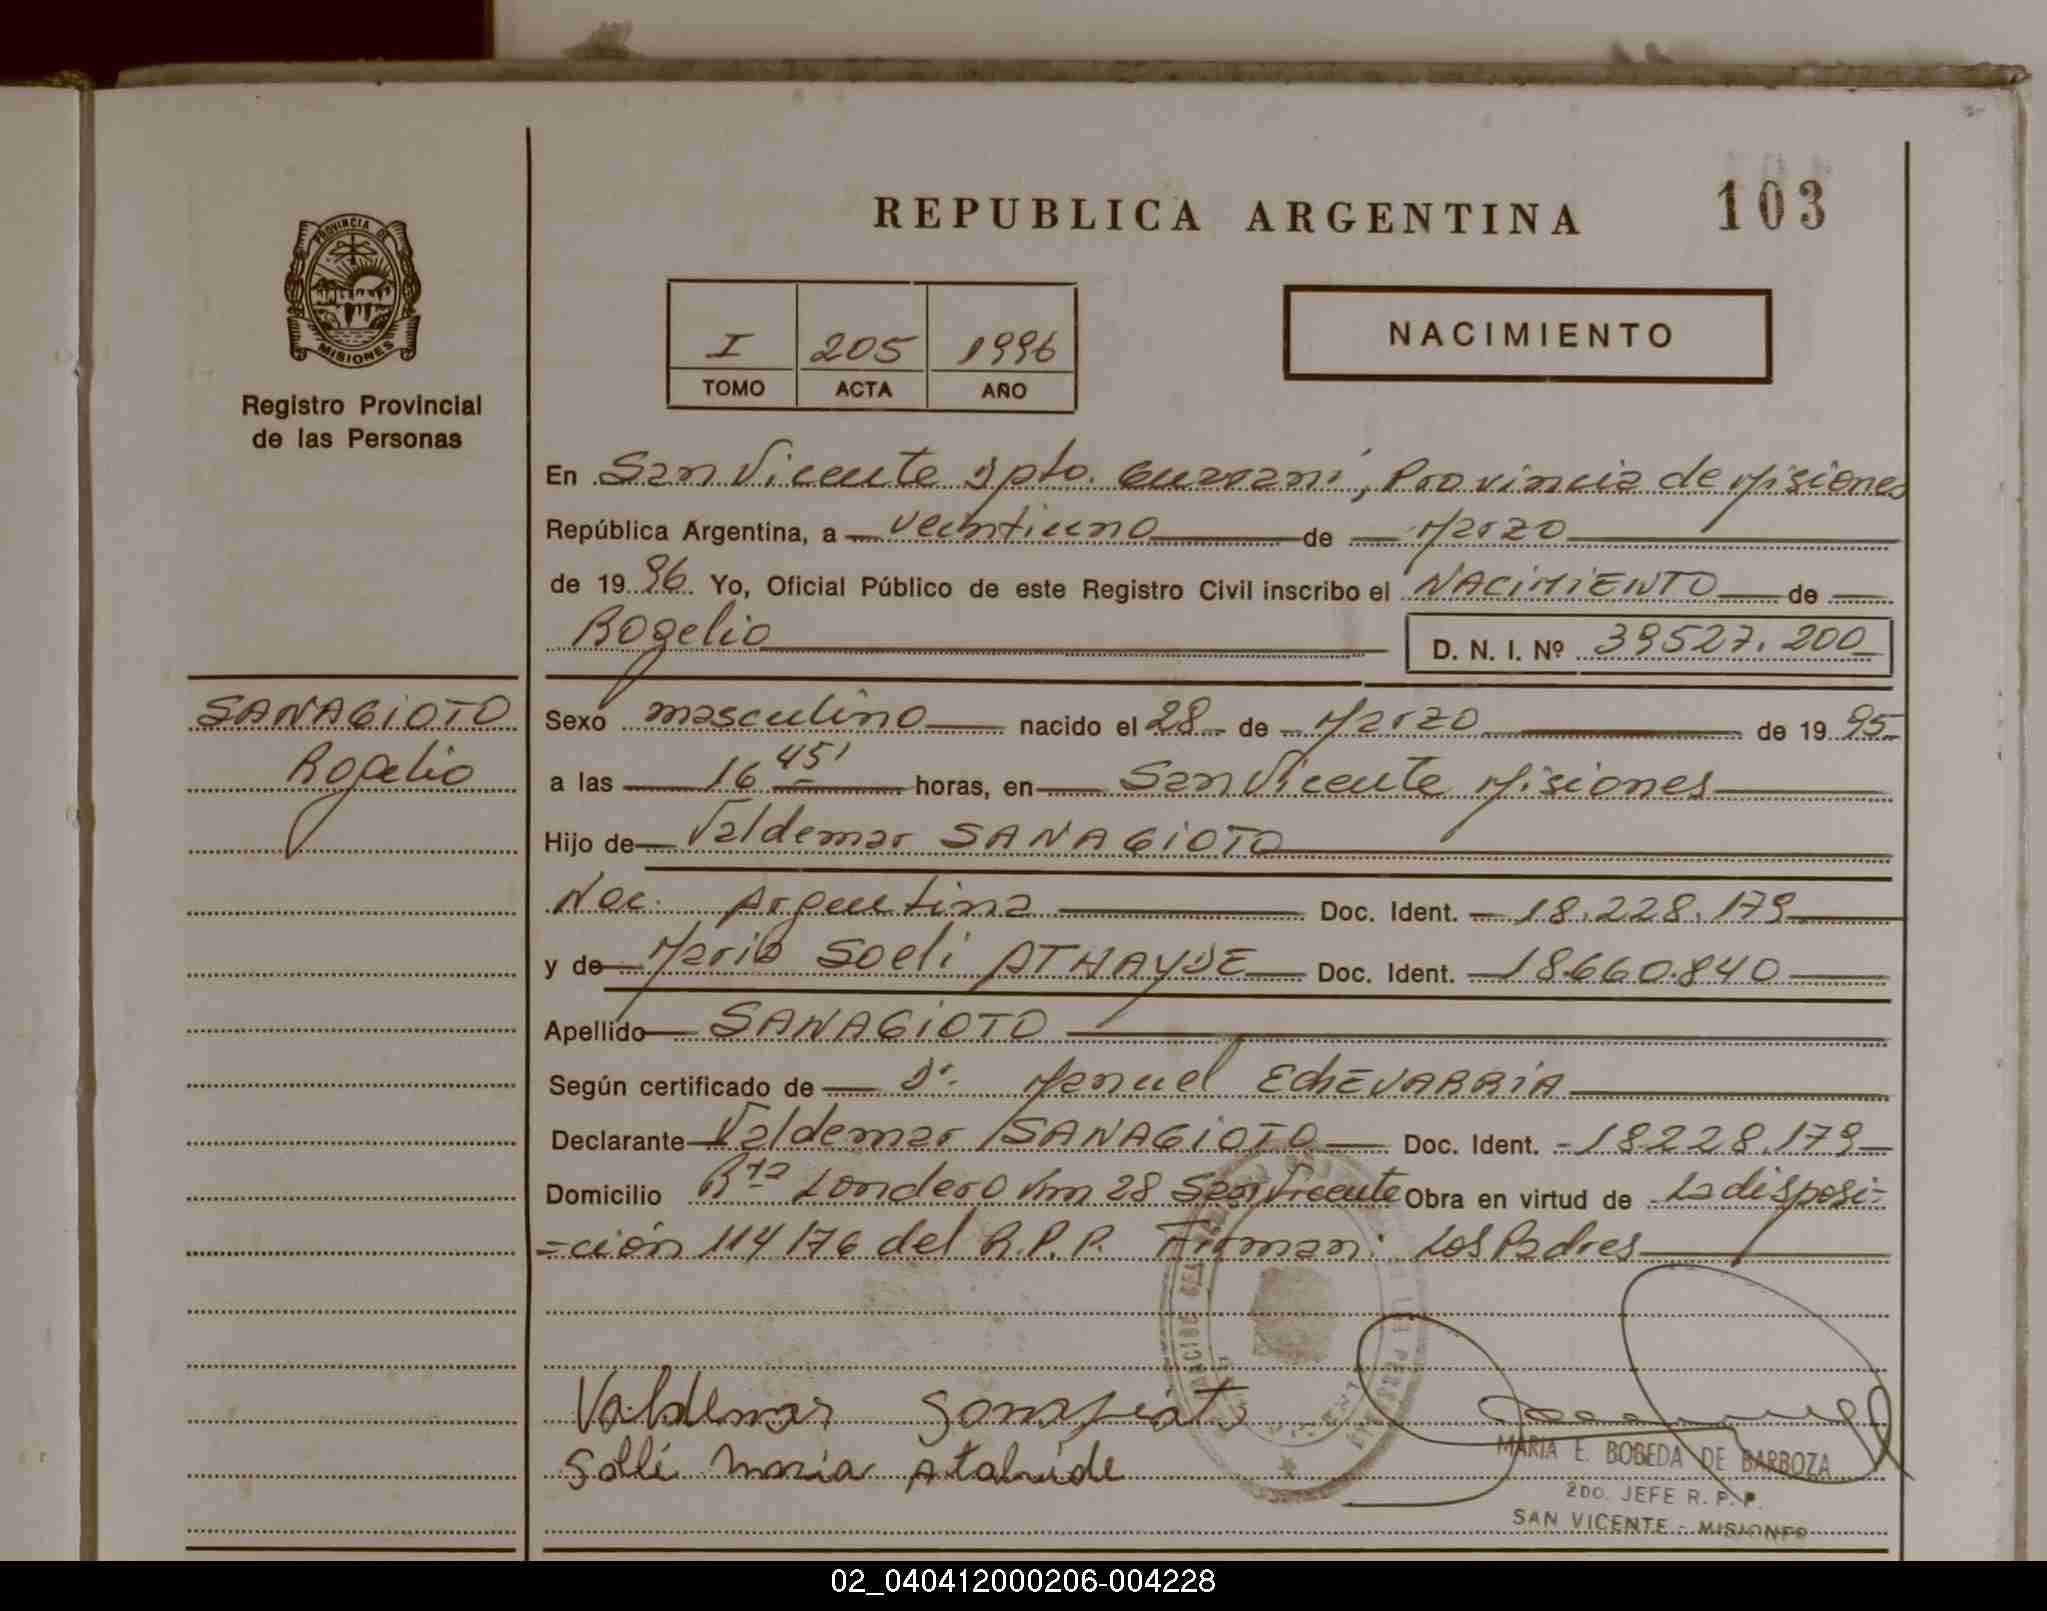 REPUBLICA ARGENTINA
103
PROVINCIA DE
MISIONES
Registro Provincial
de las Personas
I 205 1996
TOMO ACTA AÑO
NACIMIENTO
En San Vicente Dpto. Guarani, Provincia de Misiones
República Argentina, a veintiuno de Marzo
de 1996. Yo, Oficial Público de este Registro Civil inscribo el NACIMIENTO de
Rogelio
D. N. I. Nº 39527.200
SANAGIOTO
Rogelio
Sexo masculino nacido el 28 de Marzo de 1995
a las 16 45' horas, en San Vicente Misiones
Hijo de Valdemar SANAGIOTO
Nac. Argentina Doc. Ident. 18.228.179
y de Maria Soeli ATHAYDE Doc. Ident. 18.660.840
Apellido SANAGIOTO
Según certificado de Dr. Manuel EchEVARRIA
Declarante Valdemar SANAGIOTO Doc. Ident. 18228.179
Domicilio Rta Londero Km 28 San Vicente Obra en virtud de La disposi=
=ción 114/76 del R.P.P. Firman: Los Padres
Valdemar
Solli maria
MARIA E. BOBEDA DE BARBOZA
2DO. JEFE R. P. P.
SAN VICENTE - MISIONES
02_040412000206-004228